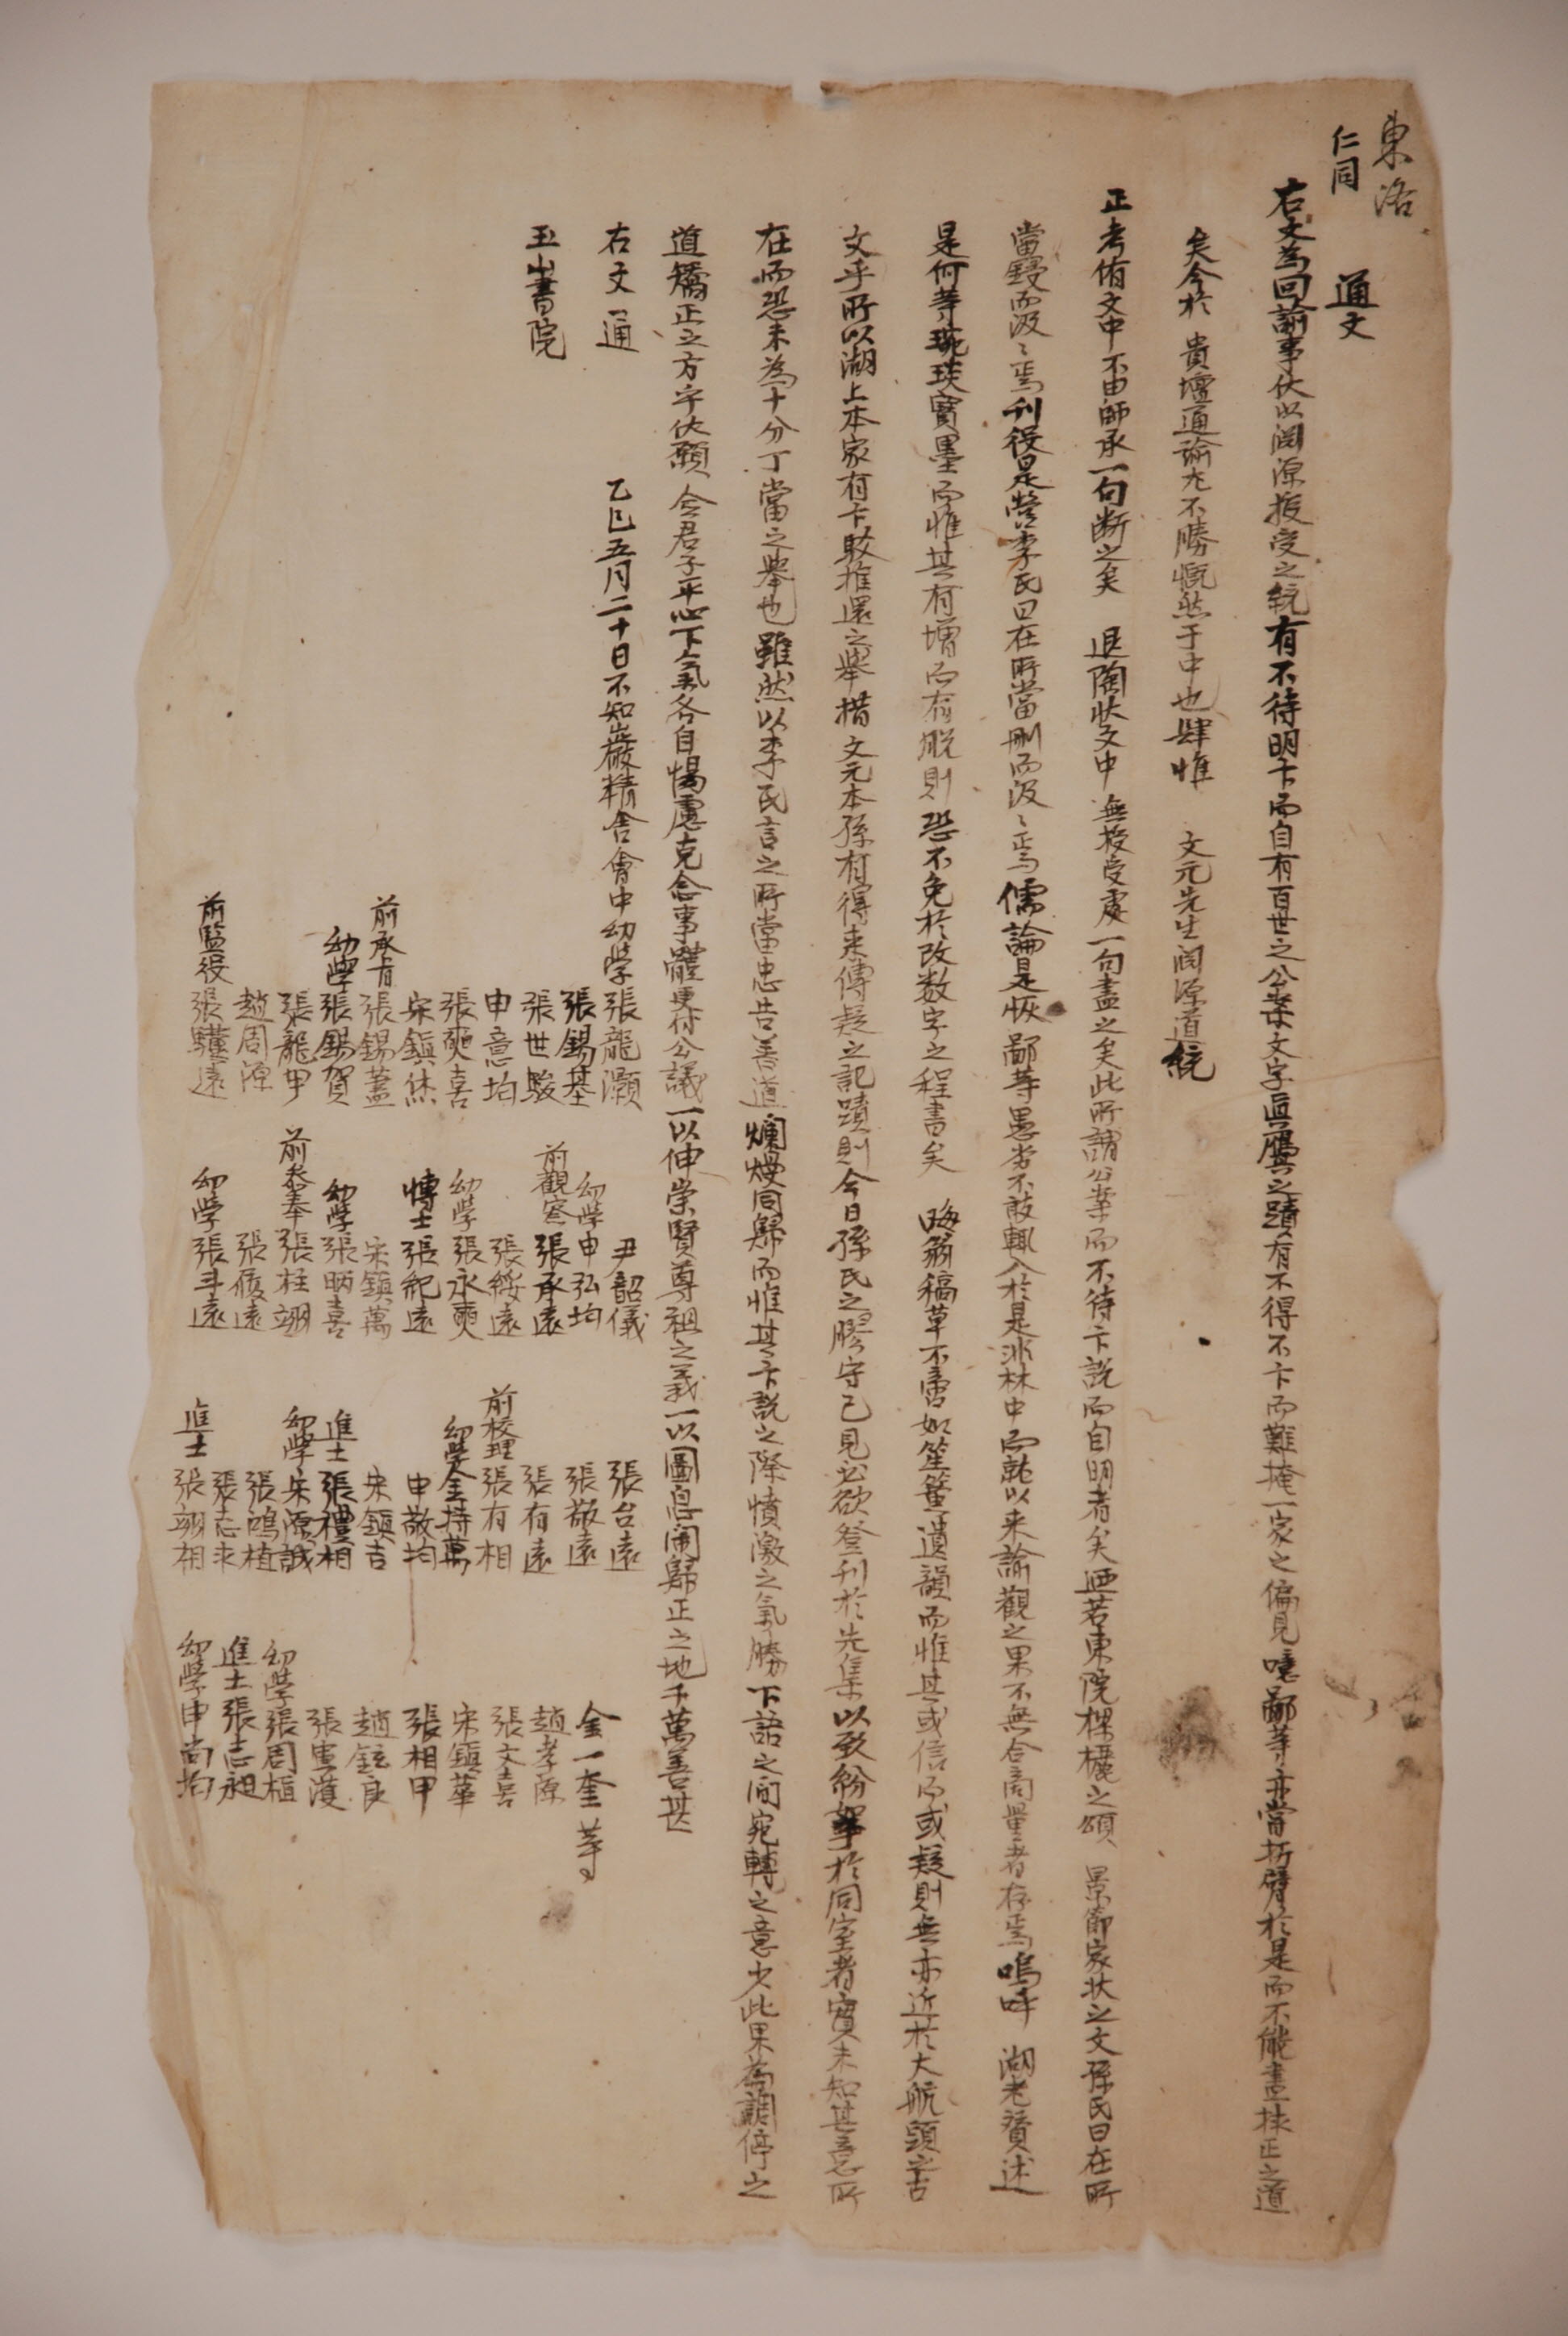 東洛
仁同
通文
右文為回諭事伏以淵源授受之統有不待明卞而自有百世之公案文字眞贗之蹟有不得不卞而難掩一家之偏見噫鄙等亦當折臂於是而不能盡扶正之道
矣今於 貴壇通諭尤不勝慨然于中也肆惟 文元先生淵源道統
正考侑文中不由師承一句断之矣 退陶狀文中無授受處一句盡之矣此所謂公案而不待卞説而自明者矣廼若東院楳櫳之頌 景節家狀之文孫氏曰在所
當鋟而汲〻焉刊役是營李氏曰在所當刪而汲〻焉儒論是恢鄙等愚劣不敢輒入於是非林中而就以来諭觀之果不無合商量者存焉嗚呼 湖老贊述
是何等琬琰寶墨而惟其有增而有脱則恐不免於改数字之程書矣 晦翁稿草不啻如笙簧遺韻而惟其或信而或疑則無亦近於大航頭古
文乎所以湖上本家有卞駁推還之舉措文元本孫有得来傳疑之記蹟則今日孫氏之膠守己見必欲登刊於先集以致紛拏於同室者實未知其意所
在而恐未為十分丁當之舉也雖然以李氏言之所當忠告善道爛熳同歸而惟其卞説之際憤激之氣勝下語之間宛轉之意少此果為調停之
道矯正之方乎伏願 僉君子平心下氣各自惕慮克念事軆更付公議一以伸崇賢尊祖之義一以圖息閙歸正之地千萬善甚
右文通
玉山書院
乙巳五月二十日不知巖精舍會中幼學張龍灝
張錫基
張世駿
申意均
張奭喜
宋鎭烋
前承旨張錫藎
幼學張錫賀
張龍甲
趙周源
前監役張驥遠
尹韶儀
幼學申弘均
前觀察張承遠
張綏遠
幼學張永奭
博士張紀遠
宋鎭萬
幼學張昞喜
前參奉張柱翊
張復遠
幼學張斗遠
張台遠
張敬遠
張有遠
前校理張有相
幼學金持萬
申敬均
宋鎭吉
進士張禮相
幼學宋源誠
張鴻植
張志求
進士張翊相
金一奎 等
趙孝原
張文喜
宋鎭華
張相甲
趙鉉良
張惠濩
幼學張周植
進士張志昶
幼學申尚均